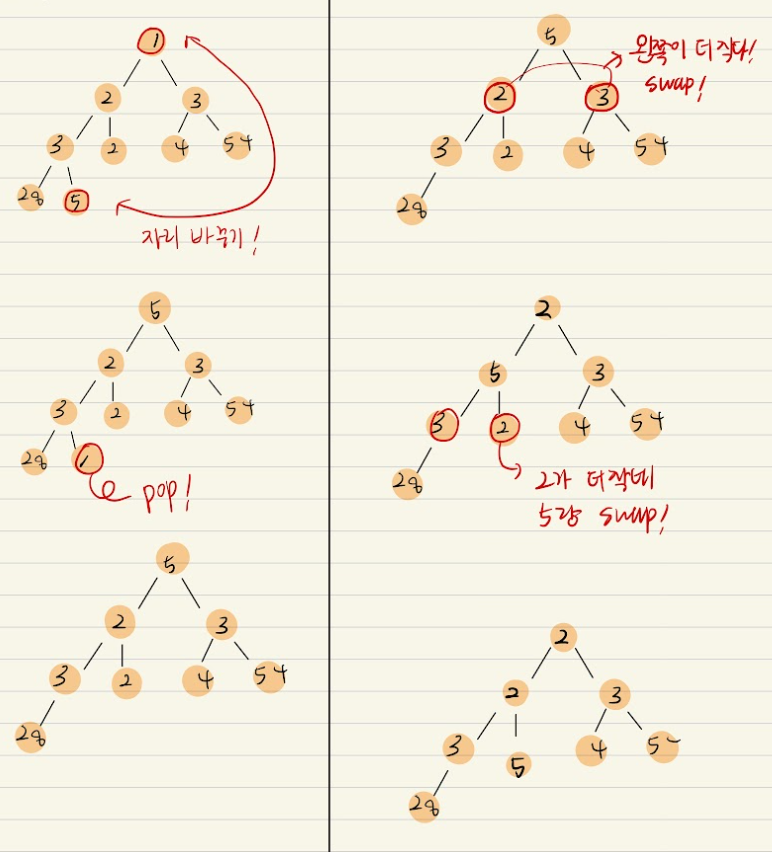 1
2 3
3 2 4 54
28 5
자리 바꾸기!
5
2 3
3 2 4 54
28 1
pop!
5
2 3
3 2 4 54
28
5
2 3
왼쪽이 더 작다!
swap!
3 2 4 54
28
2
5 3
3 2 4 54
28
2가 더 작네
5랑 swap!
2
2 3
3 5 4 5
28